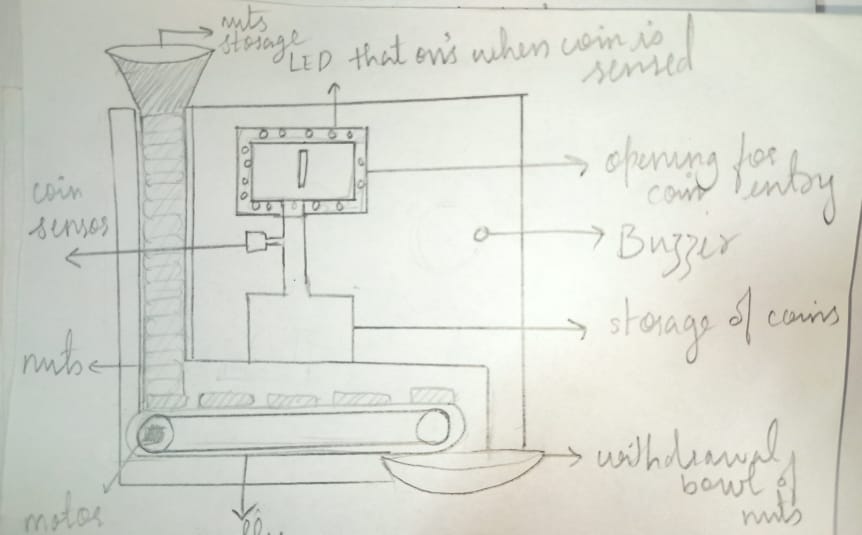 nuts
storage
LED that on's when coin is
sensed
opening for
coin entry
coin
sensor
Buzzer
storage of coins
nuts
withdrawal
bowl of
nuts
motor